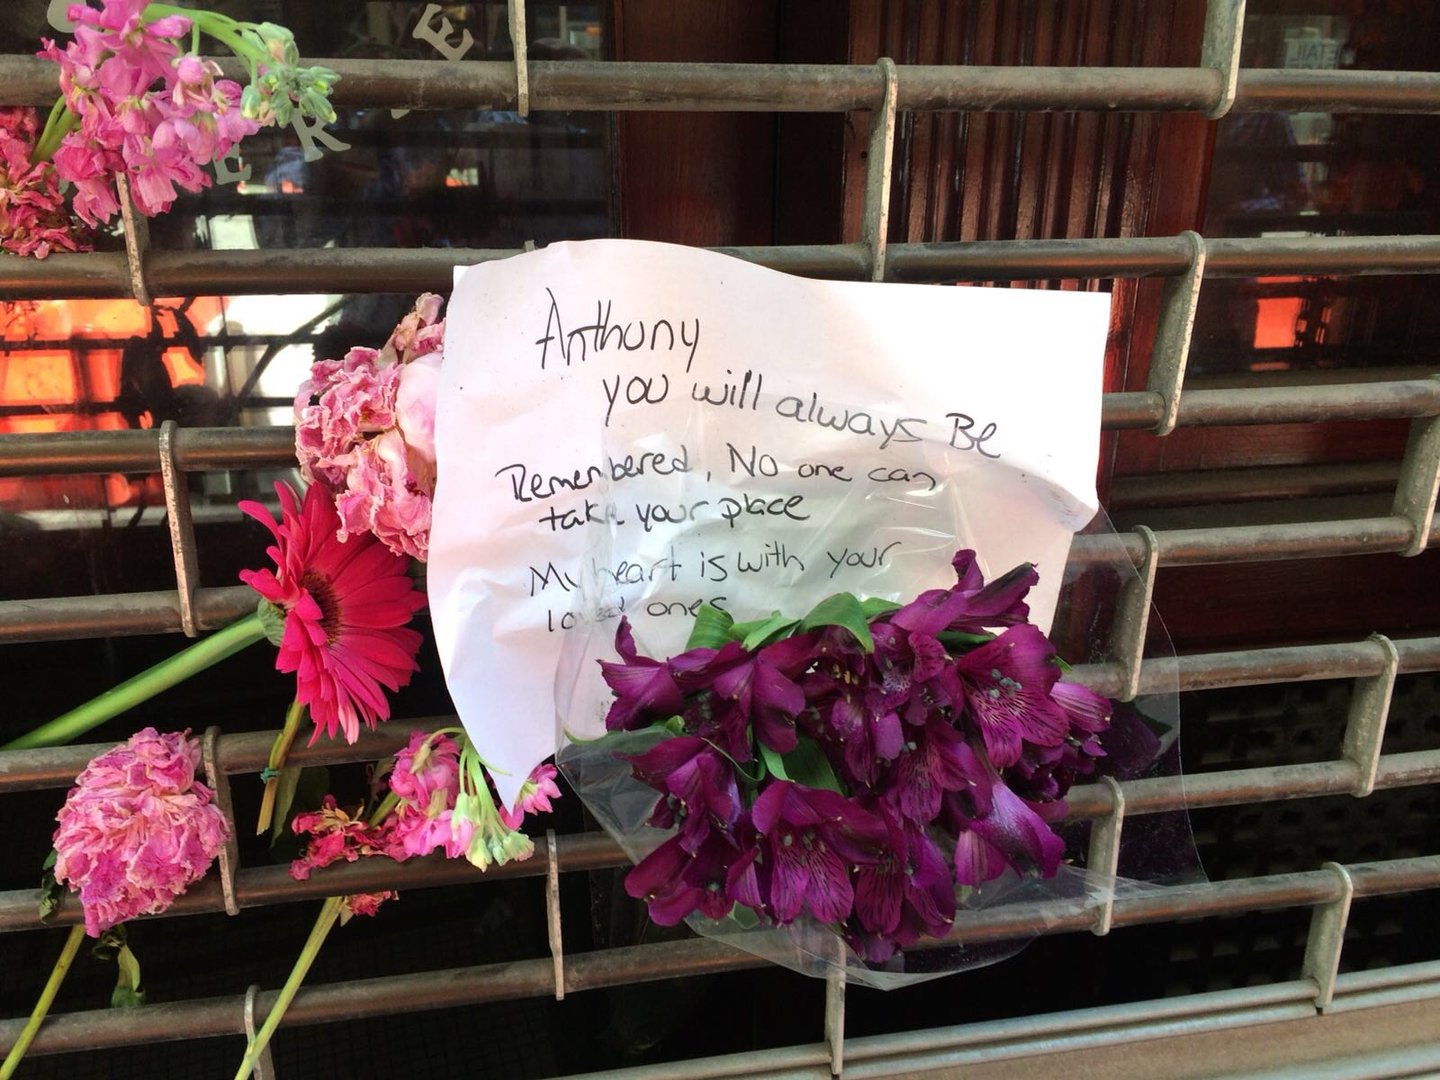 Anthony
you will always Be
Remembered, No one can
take your place
My heart is with your
loved ones